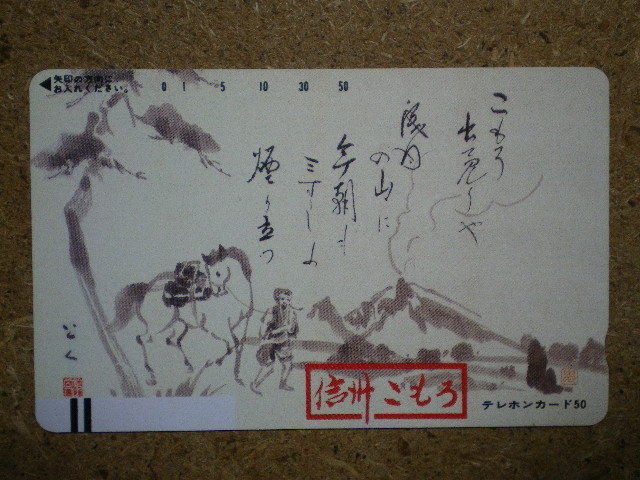 矢印の方向に
お入れください。
0 1 5 10 30 50
こもろ
出て見りや
浅間
の山に
今朝も
三すじの
煙り立つ
信州こもろ
テレホンカード50